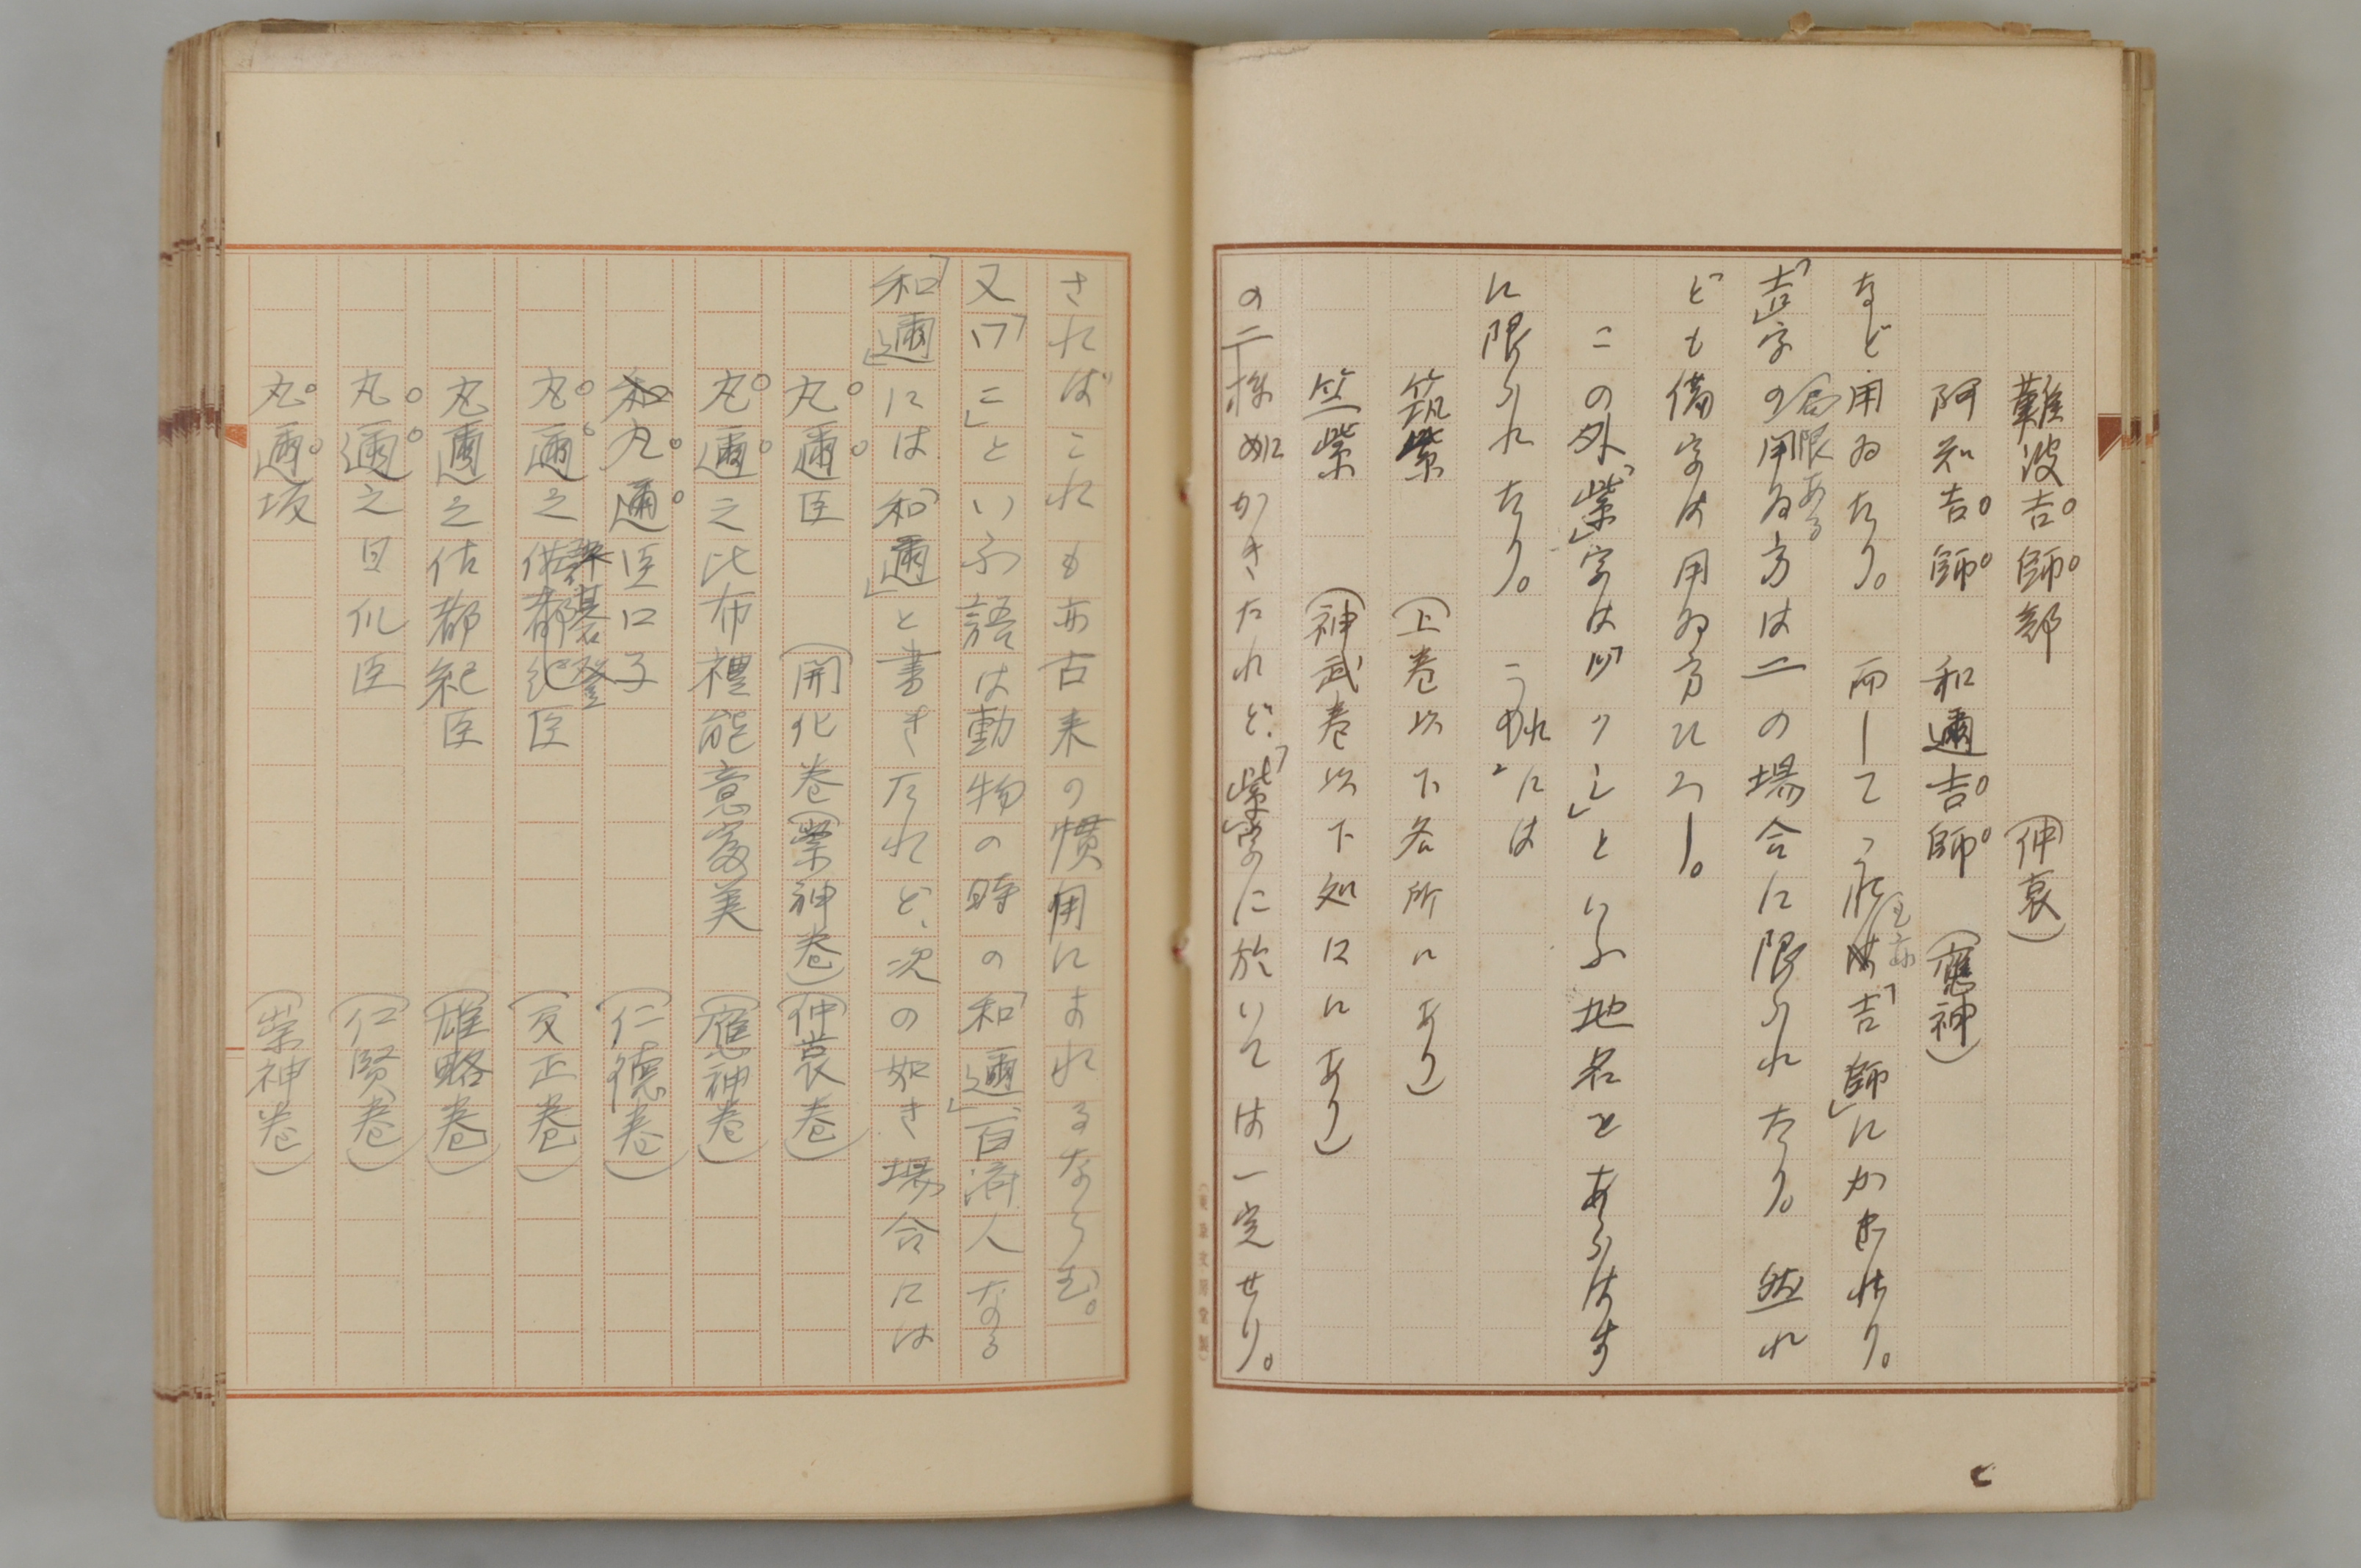 難波吉師部 (仲哀)
阿知吉師 和邇吉師 (應神)
など用ゐたり。而して「吉師」にかぎれり。
局限ある
「吉」字の用ゐ方は二の場合に限られたり。然れ
ども備字は用ゐ方ひろし。
この外「紫」字は「ツクシ」といふ地名をあらはす
に限られたり。これには
筑紫 (上巻以下各所にあり)
竺紫 (神武巻以下処々にあり)
の二様にかきたれど、「紫」字に於いては一定せり。
さればこれも亦古来の慣用によれるならむ。
又「ワニ」といふ語は動物の時の「和邇」、百済人なる
「和邇」には「和邇」と書きたれど、次の如き場合には
丸邇臣 (開化巻)(崇神巻)(仲哀巻)
丸邇之比布禮能意富美 (應神巻)
丸邇臣口子 (仁徳巻)
丸邇之許碁登臣 (反正巻)
丸邇之佐都紀臣 (雄略巻)
丸邇之日爪臣 (仁賢巻)
丸邇坂 (崇神巻)